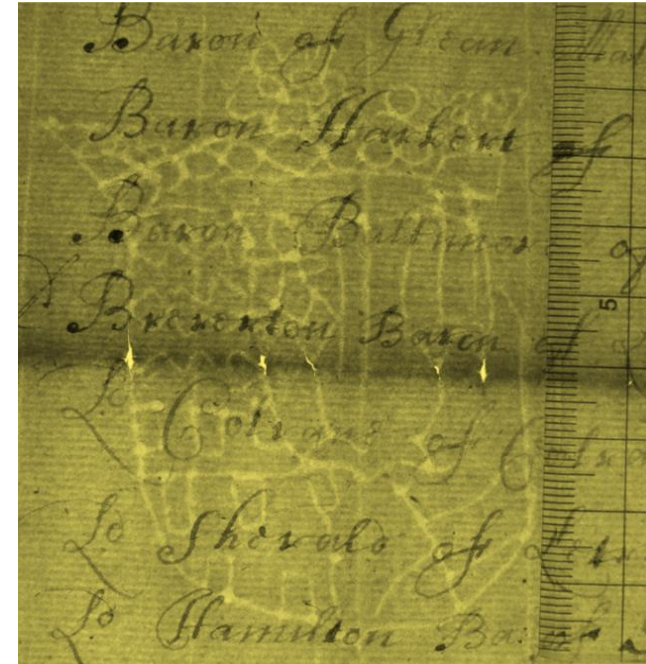 Baron of Glean
Baron Harbert of
Baron Baltimor of
Brererton Baron of
Lo Colrane of Colra
Lo Sherald of
Lo Hamilton Ba: of
5